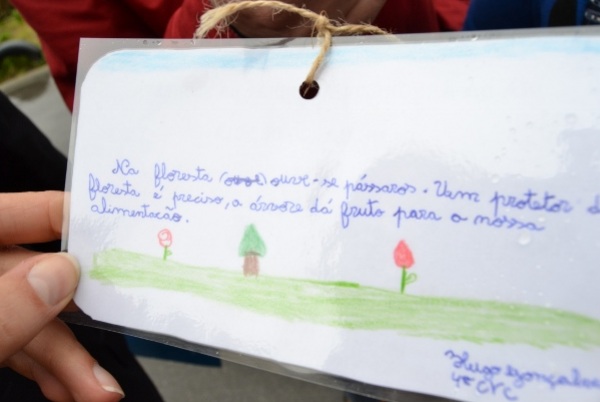 Na floresta ouve-se pássaros. Vem protetor d
floresta é preciso, a árvore dá fruto para a nossa
alimentacão.
Hugo Gonçalves
4º CVC